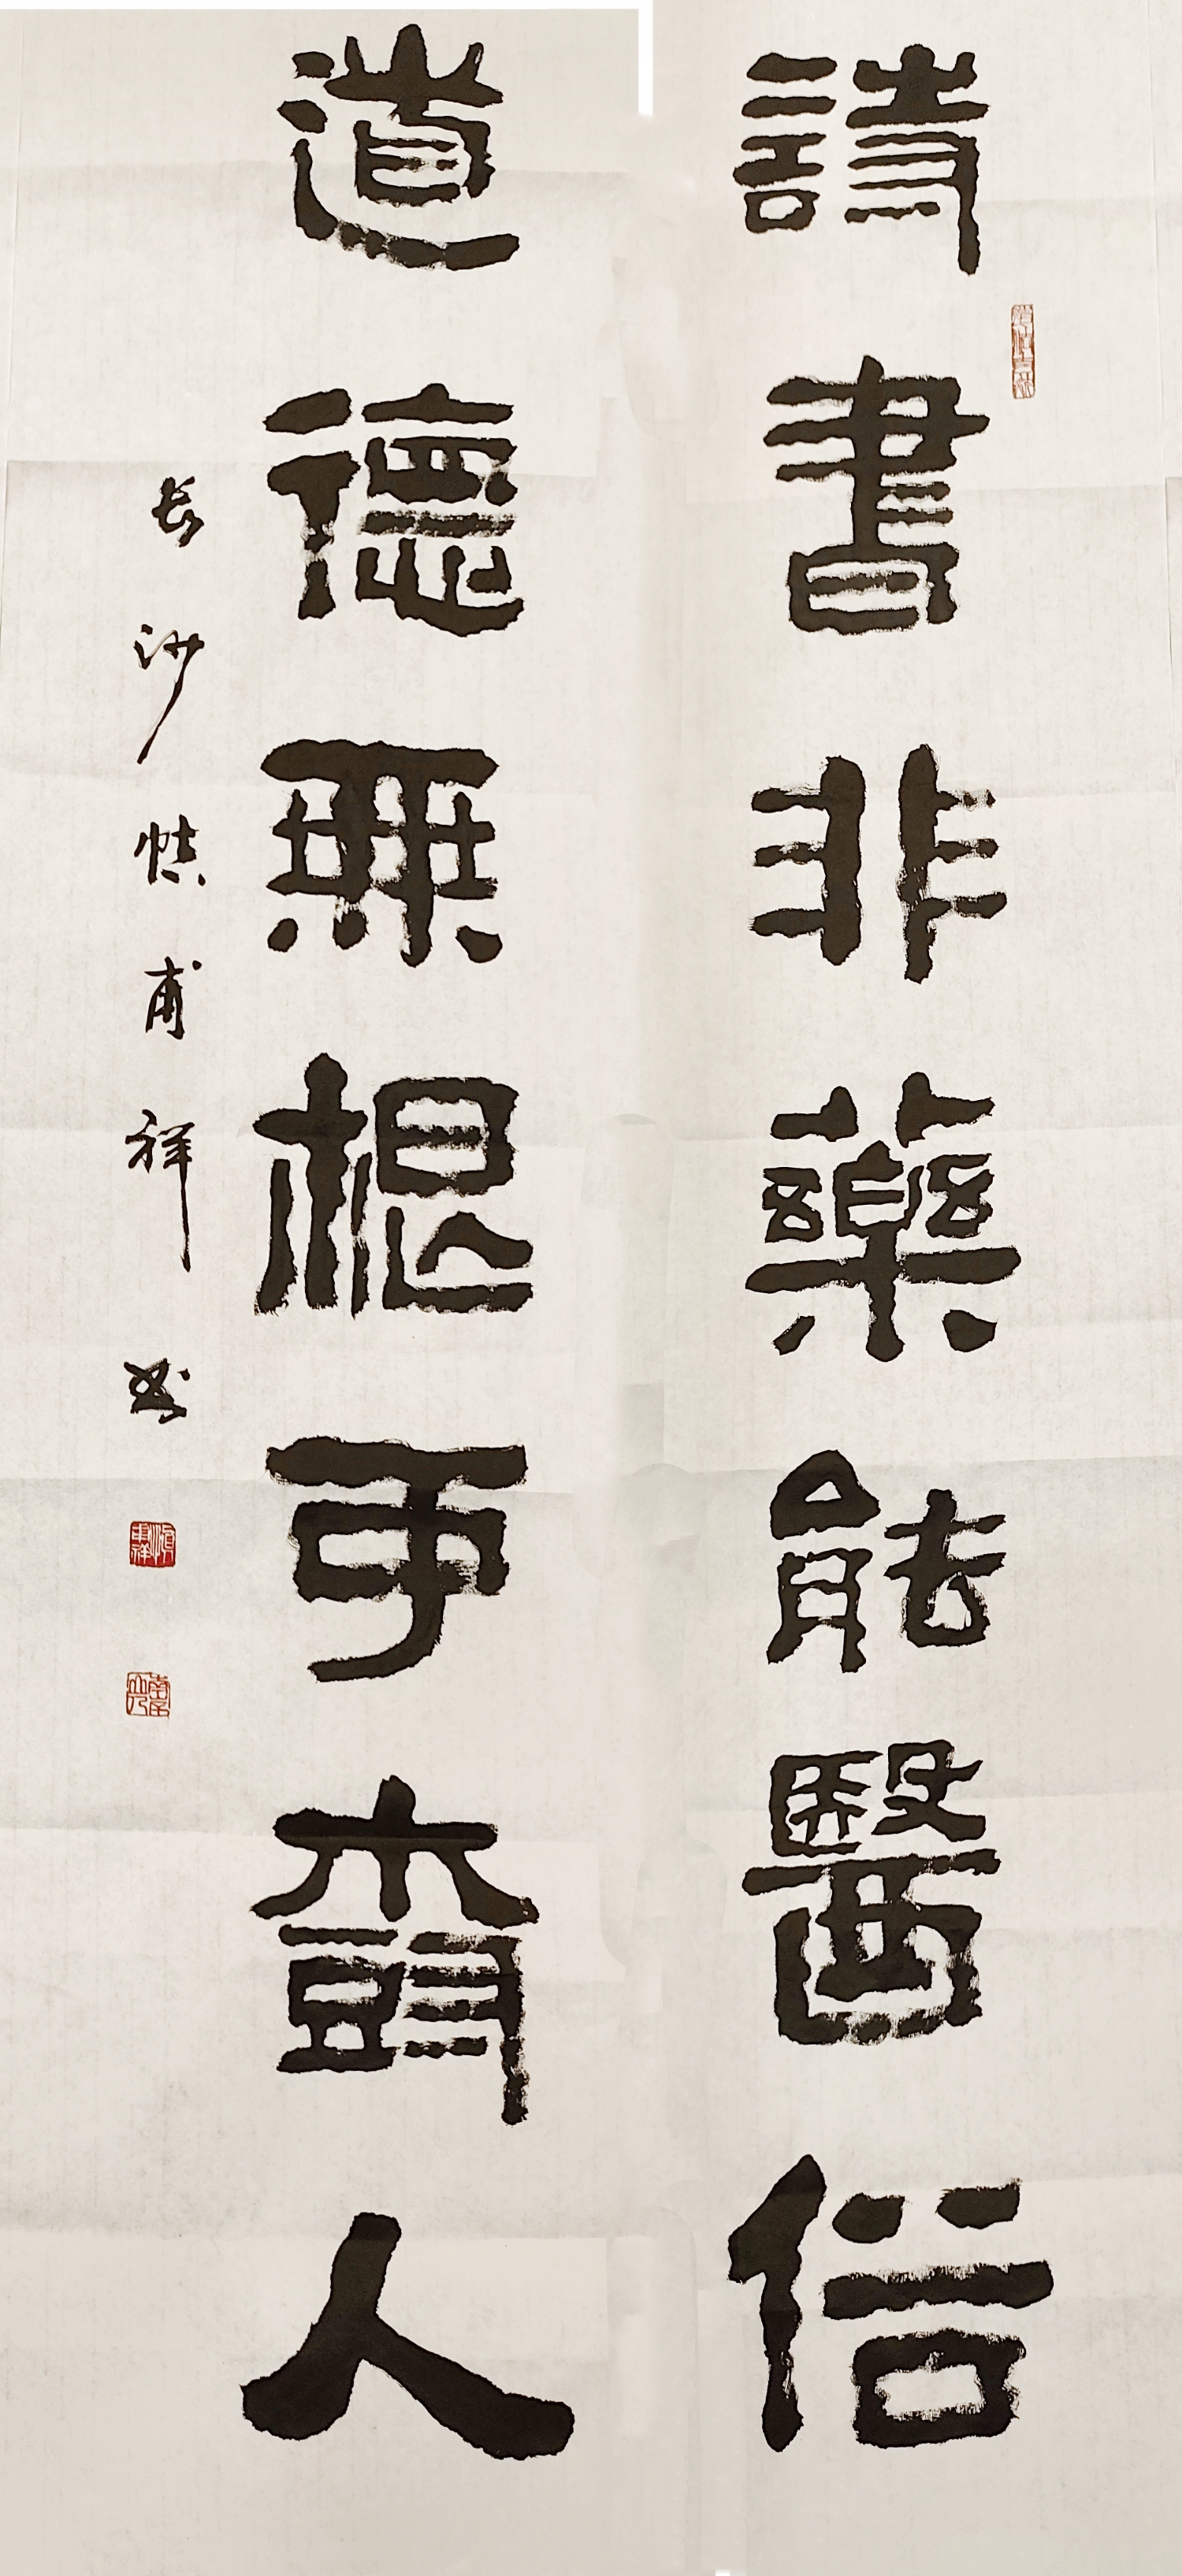 詩書非藥能醫俗
道德無根可樹人
長沙慎甫祥書